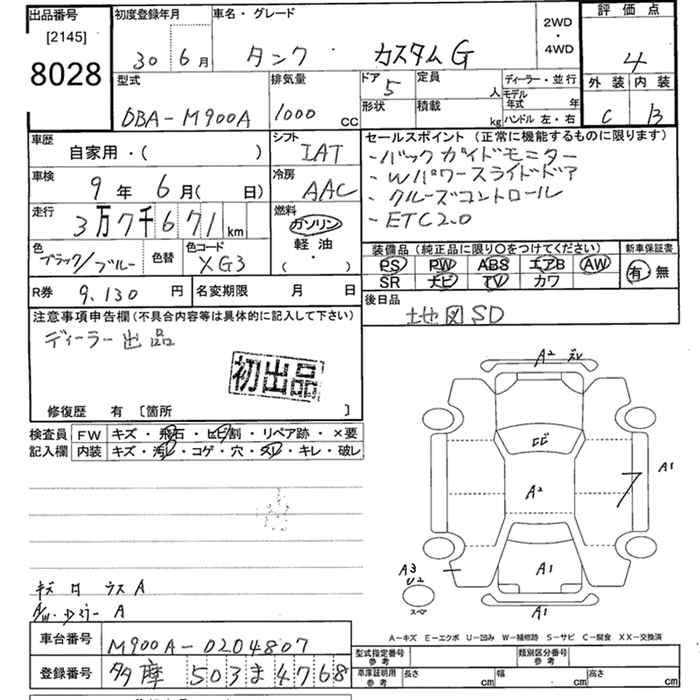 出品番号
[2145]
8028
初度登録年月
30 6月
車名・グレード
タンク カスタムG
2WD
・
4WD
評価点
4
外装 内装
C B
型式
DBA-M900A
排気量
1000 CC
ドア
5
形状
定員
人
積載
kg
ディーラー・並行
モデル
年式 年
ハンドル 左・右
車歴
自家用・( )
シフト
IAT
車検
9年 6月( 日)
冷房
AAC
走行
3万7千671km
燃料
ガソリン
軽油
( ・ )
色
ブラック/ブルー
色替
色コード
XG3
R券
9,130 円
名変期限 月 日
セールスポイント(正常に機能するものに限ります)
-バックガイドモニター
-Wパワースライドドア
-クルーズコントロール
-ETC2.0
装備品(純正品に限り○をつけてください)
PS PW ABS エアB AW
SR ナビ TV カワ
新車保証書
有・無
後日品
地図SD
注意事項申告欄(不具合内容等は具体的に記入して下さい)
ディーラー出品
初出品
修復歴 有 [箇所 ]
検査員
記入欄
FW キズ・飛石・ヒビ割・リペア跡・×要
内装 キズ・汚レ・コゲ・穴・スレ・キレ・破レ
キズ
ウスA
A/W
A
A2
A2
A1
A1
A1
A3
U2
スペア
A-キズ E-エクボ U-凹み W-補修跡 S-サビ C-腐食 XX-交換済
車台番号
M900A-0204807
登録番号
多摩503ま4768
型式指定番号
参考
類別区分番号
参考
車庫証明用
参考
長さ cm 幅 cm 高さ cm